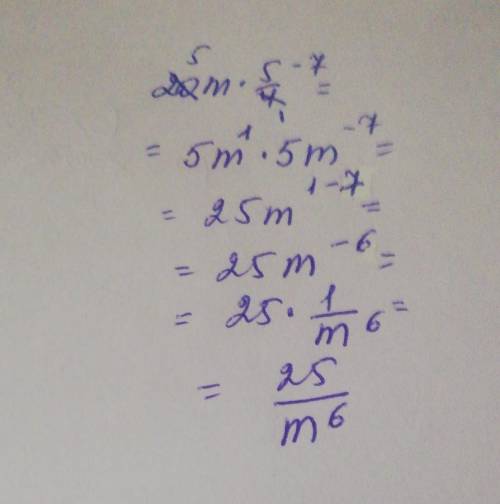 5
20m · 5/4 ⁻⁷ =
1
= 5m¹ · 5m⁻⁷ =
= 25m¹⁻⁷ =
= 25m⁻⁶ =
= 25 · 1/m⁶ =
= 25/m⁶